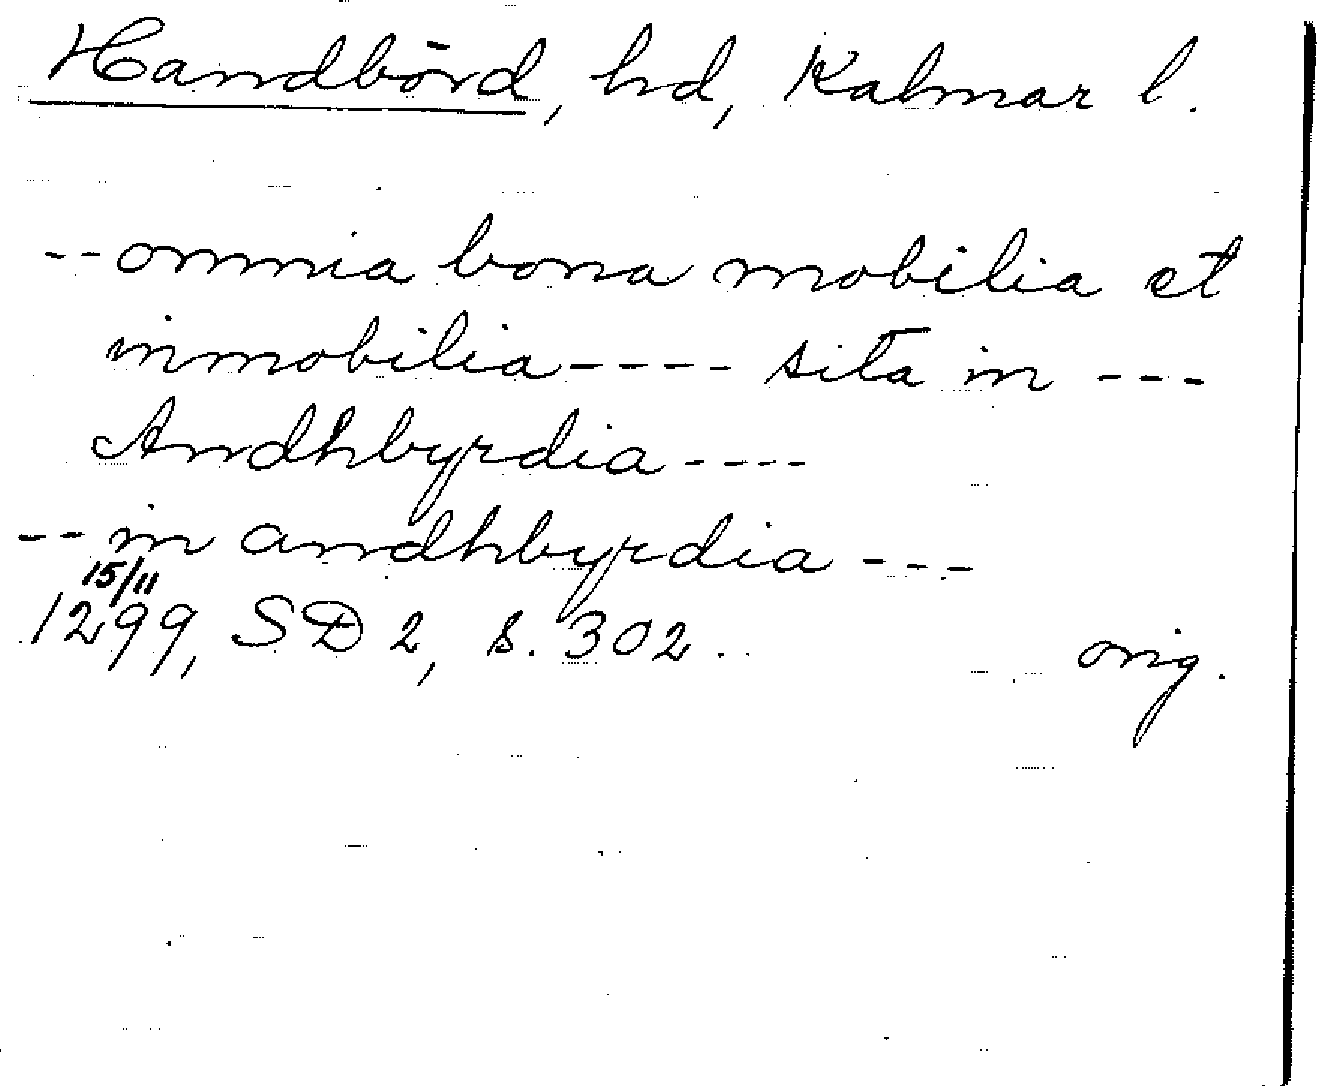 Handbörd, hd, Kalmar l.
-- omnia bona mobilia et
immobilia ---- sita in ---
Andhbyrdia ----
-- in andhbyrdia ---
15/11
1299, SD 2, s. 302.
orig.